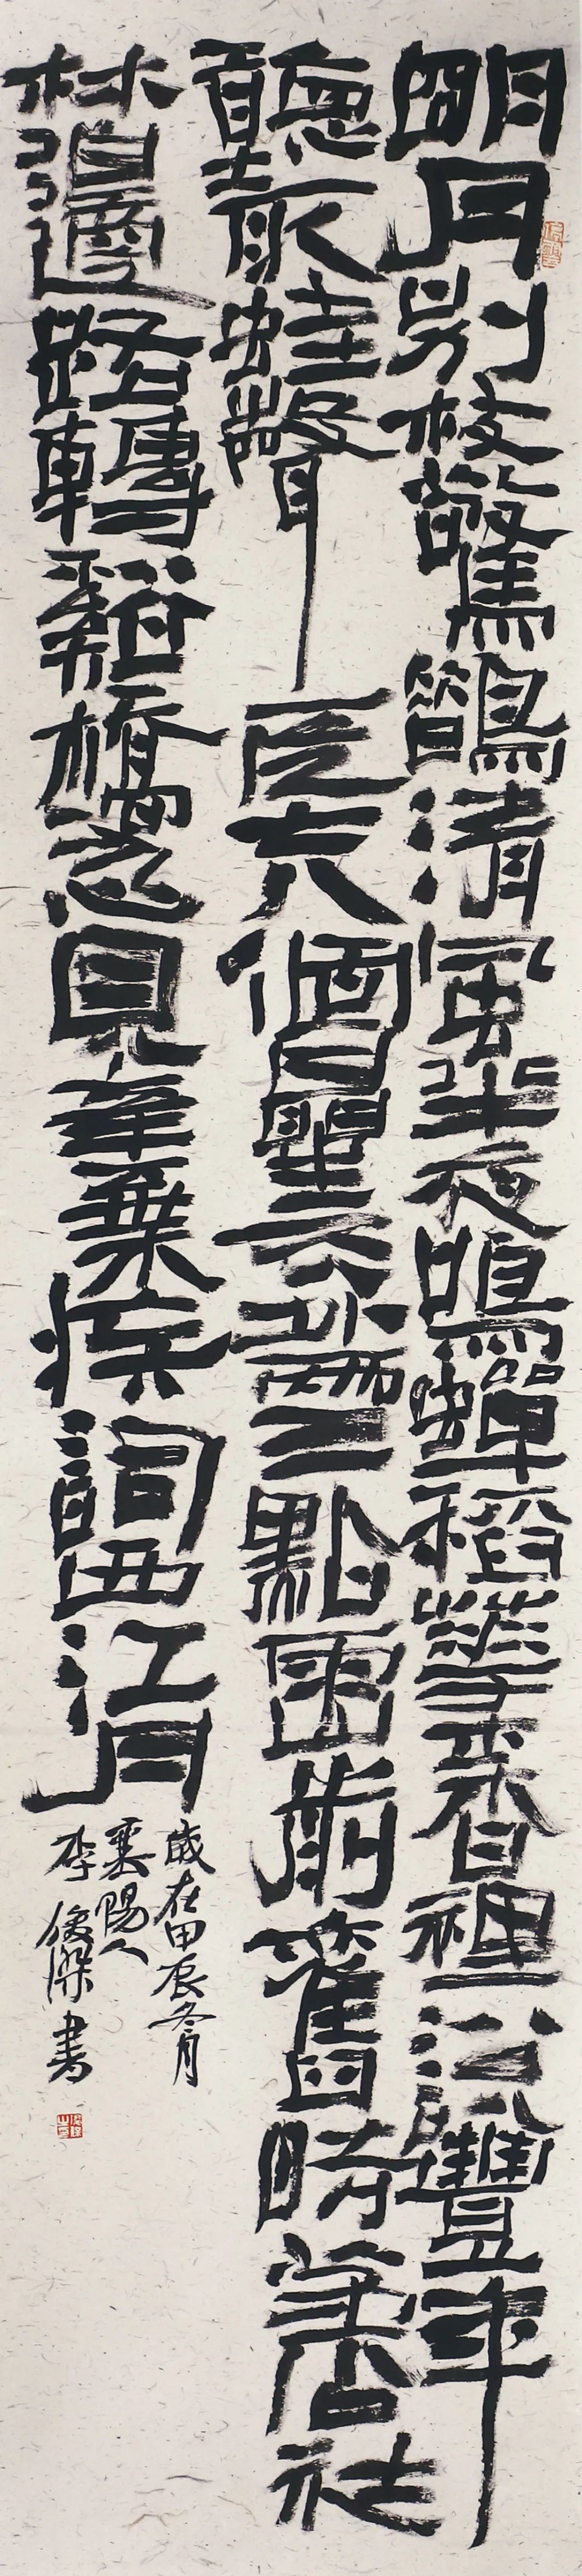 明月別枝驚鵲清風半夜鳴蟬稻花香裡説豐年
聽取蛙聲一片七八個星天外兩三點雨山前舊時茅店社
林邊路轉谿橋忽見辛棄疾詞西江月
歲在甲辰冬月
襄陽人
李俊傑書